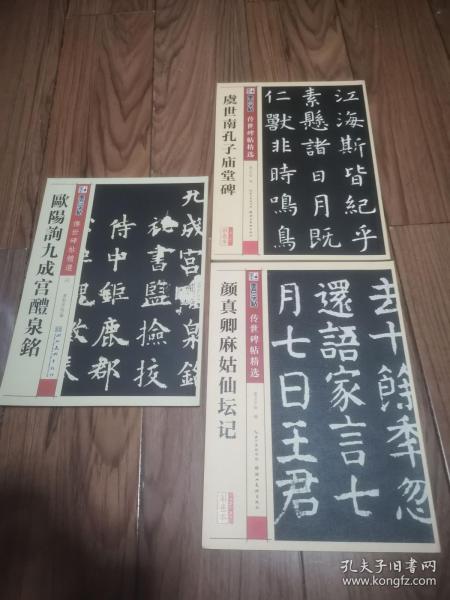 歐陽詢九成宫醴泉銘
傳世碑帖精選
九成宫醴泉銘
秘書監撿挍
侍中鉅鹿郡
虞世南孔子庙堂碑
传世碑帖精选
江海斯皆紀乎
素懸諸日月既
仁獸非時鳴鳥
颜真卿麻姑仙坛记
传世碑帖精选
去十餘季忽
還語家言七
月七日王君
孔夫子旧书网
www.kongfz.com